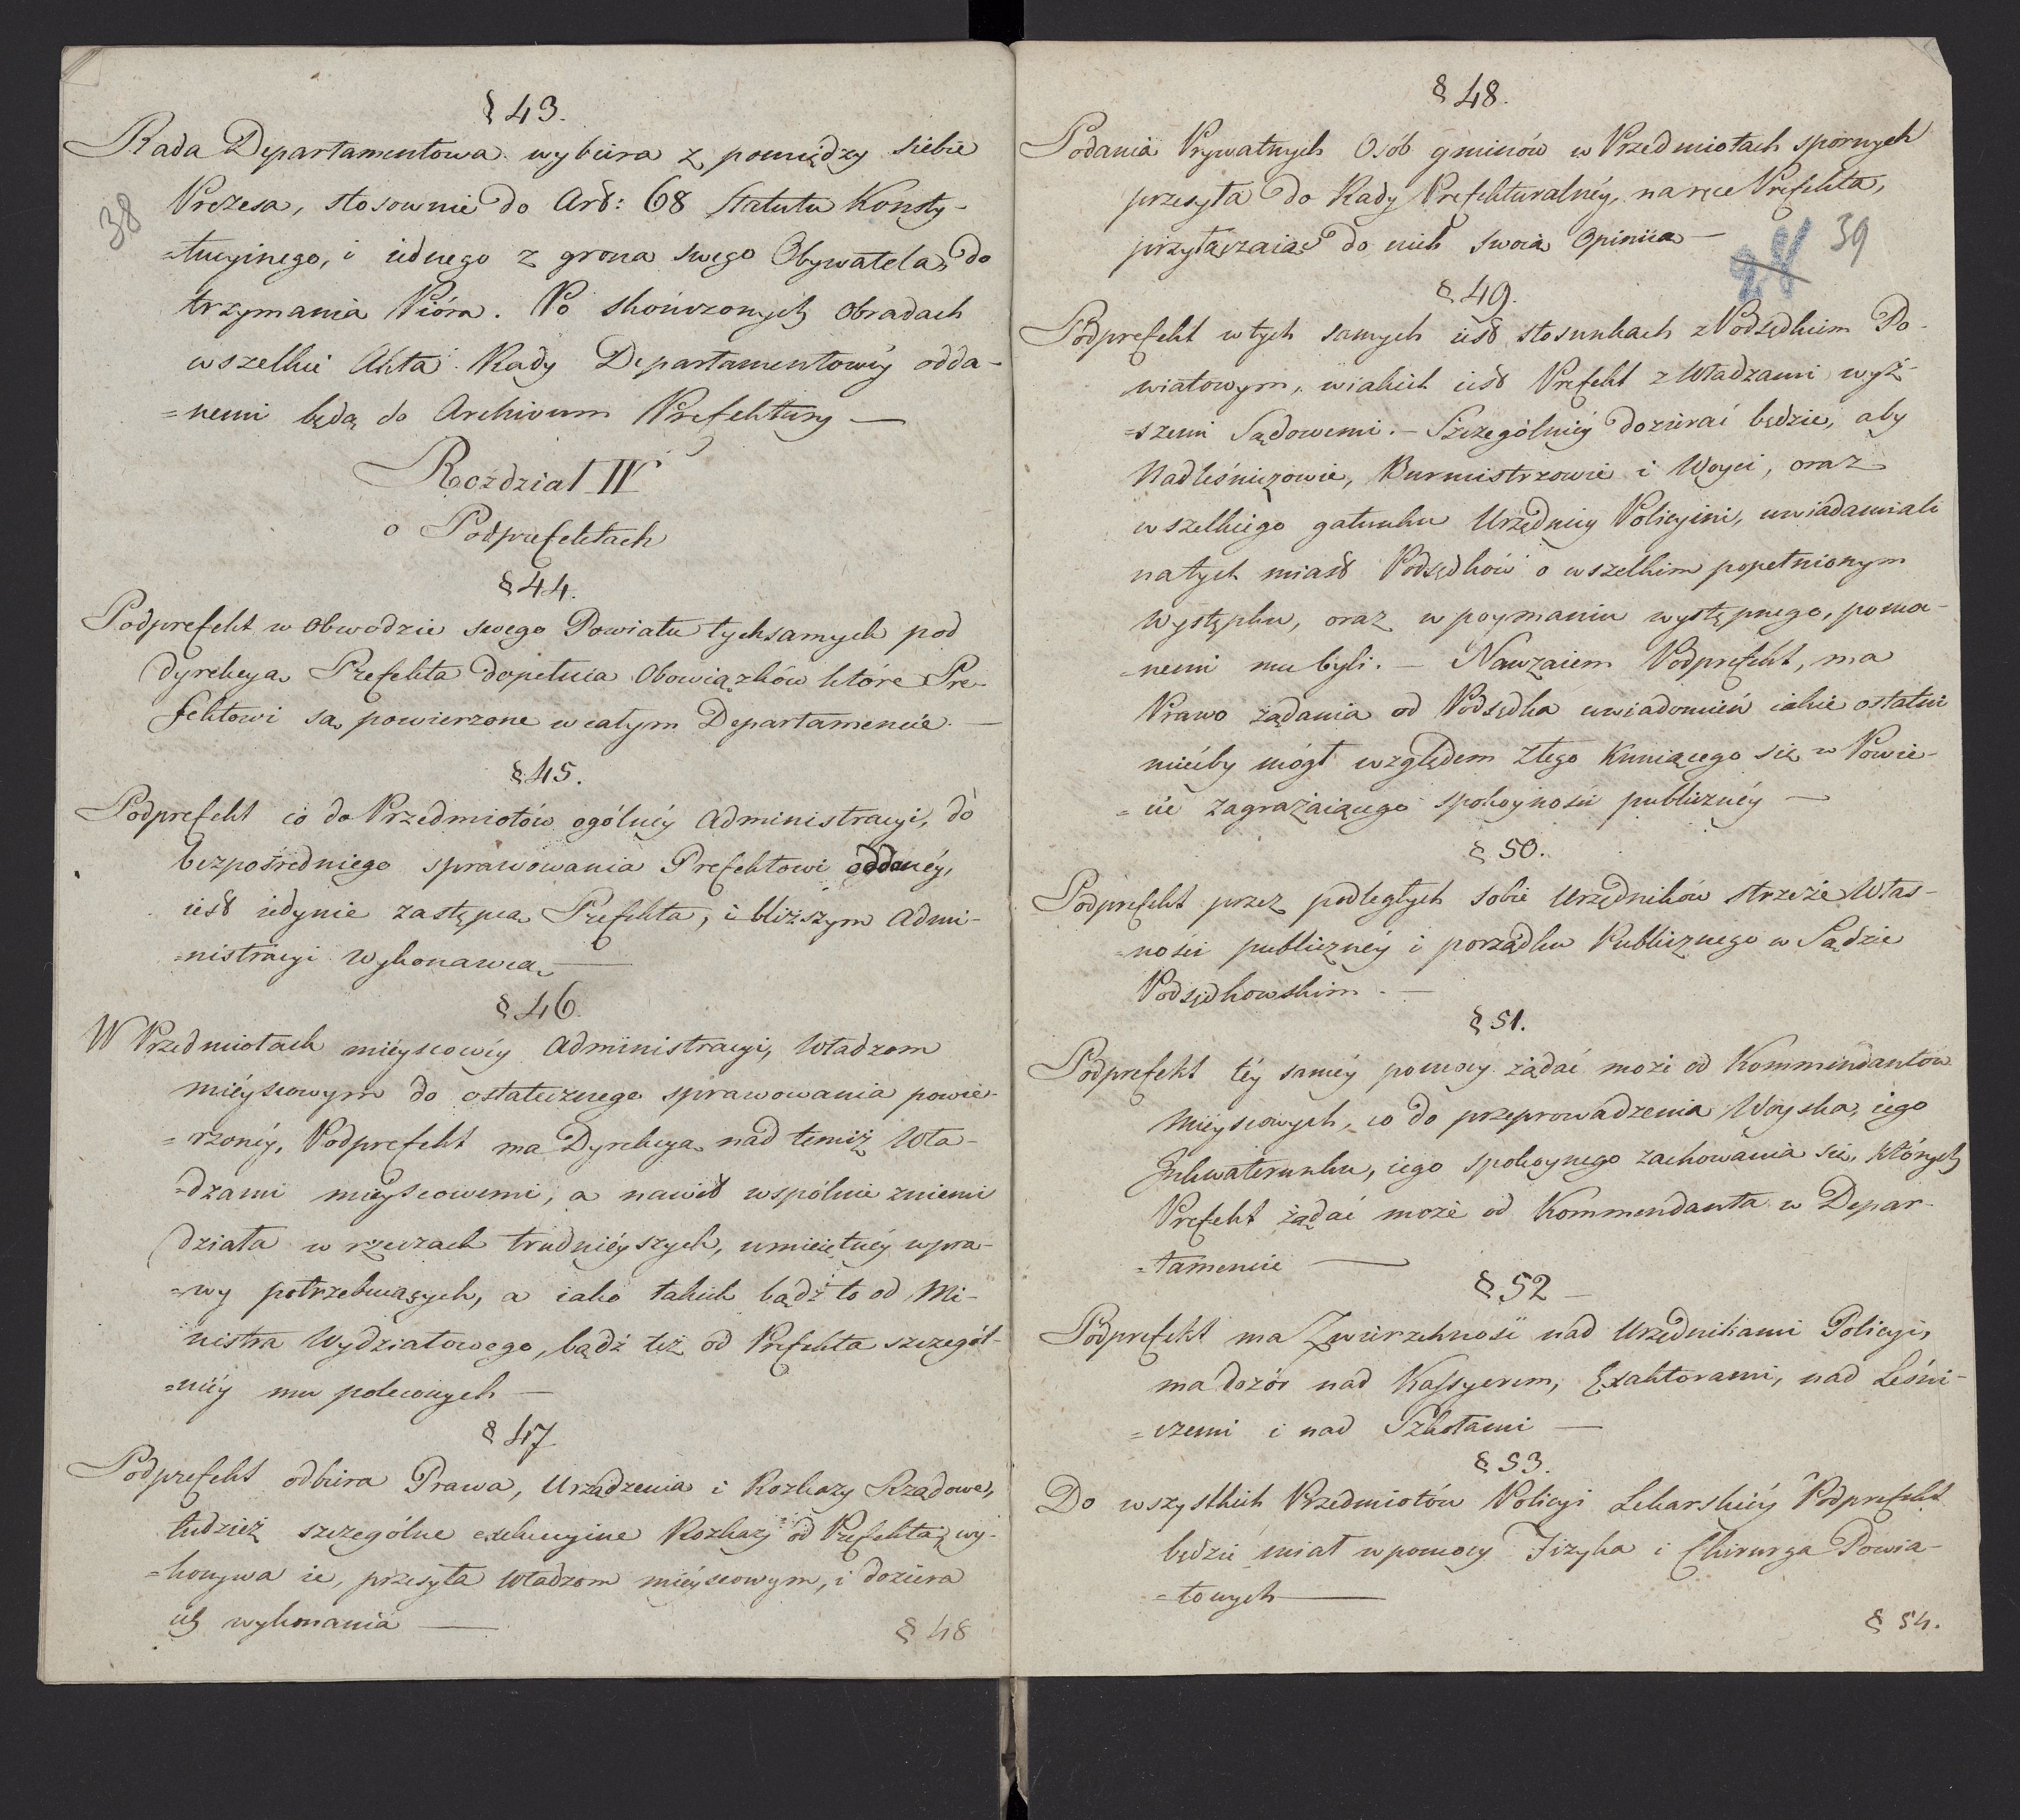 § 43.
Rada Departamentowa wybiera z pomiędzy siebie
38
Prezesa, stosownie do Art: 68 Statutu Konsty-
=tucyinego, i iednego z grona swego Obywatela do
trzymania Pióra. Po skończonych obradach
wszelkie Akta Rady Departamentowéy odda-
=nemi będą do Archivum Prefektury —
Rozdział IV
o Podprefektach
§ 44.
Podprefekt w Obwodzie swego Powiatu tychsamych pod
dyrekcyą Prefekta dopełnia Obowiązków które Pre-
fektowi są powierzone w całym Departamencie. —
§ 45.
Podprefekt co do Przedmiotów ogólnéy Administracyi, do
bezpośredniego sprawowania Prefektowi oddanéy,
iest iedynie zastępcą Prefekta, i bliższym Admi-
=nistracyi Wykonawcą —
§ 46.
W Przedmiotach mieyscowéy Administracyi, Władzom
mieyscowym do ostatecznego sprawowania powie-
=rzonéy, Podprefekt ma Dyrekcyą nad temiż Wła-
=dzami mieyscowemi, a nawet wspólnie zniemi
działa w rzeczach trudnieyszych, umieiętnéy wpra-
=wy potrzebuiących, a iako takich bądź to od Mi-
nistra Wydziałowego, bądź też od Prefekta szczegól-
=niéy mu poleconych —
§ 47
Podprefekt odbiera Prawa, Urządzenia i Rozkazy Rządowe,
tudzież szczególne exekucyine Rozkazy od Prefekta, wy-
=konywa ie, przesyła Władzom mieyscowym, i doziera
ich wykonania —
§ 48
§ 48.
Podania Prywatnych Osób gminów w Przedmiotach spornych
przesyła do Rady Prefekturalnéy, na ręce Prefekta,
przyłączaiąc do nich swoią Opiniią —
28 39
§ 49.
Podprefekt wtych samych iest stosunkach z Podsędkiem Po-
wiatowym, w iakich iest Prefekt z Władzami wyż-
=szemi Sądowemi. — Szczególniéy dozierać będzie, aby
Nadleśniczowie, Burmistrzowie i Woyci, oraz
wszelkiego gatunku Urzędnicy Policyini, uwiadamiali
natych miast Podsędków o wszelkim popełnionym
Występku, oraz w poymaniu występnego, pomoc-
=nemi mu byli. — Nawzaiem Podprefekt, ma
Prawo żądania od Podsędka uwiadomień iakie ostatni
miećby mógł względem złego Knuiącego się w Powie-
=cie zagrażaiącego spokoyności publicznéy —
§ 50.
Podprefekt przez podległych sobie Urzędników strzeże Włas-
=ności publicznéy i porządku Publicznego w Sądzie
Podsędkowskim. —
§ 51.
Podprefekt téy saméy pomocy żądać może od Kommendantów
Mieyscowych, co do przeprowadzenia Woyska, iego
Inkwaterunku, iego spokoynego zachowania się, których
Prefekt żądać może od Kommendanta w Depar-
=tamencie —
§ 52 —
Podprefekt ma Zwierzchność nad Urzędnikami Policyi,
ma dozór nad Kassyerem, Exaktorami, nad Leśni-
=czemi i nad Szkołami —
§ 53.
Do wszystkich Przedmiotów Policyi Lekarskiéy Podprefekt
będzie miał w pomocy Fizyka i Chirurga Powia-
=towych —
§ 54.